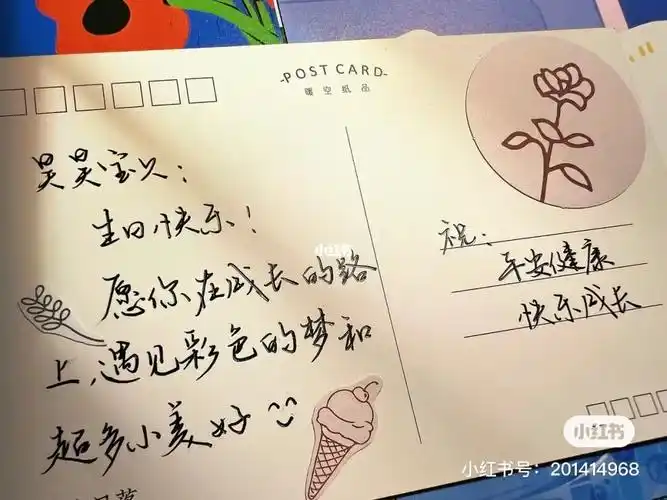 POST CARD
暖空纸品
昊昊宝贝：
生日快乐！
愿你在成长的路
上，遇见彩色的梦和
超多小美好
祝：
平安健康
快乐成长
小红书
小红书
小红书号：201414968